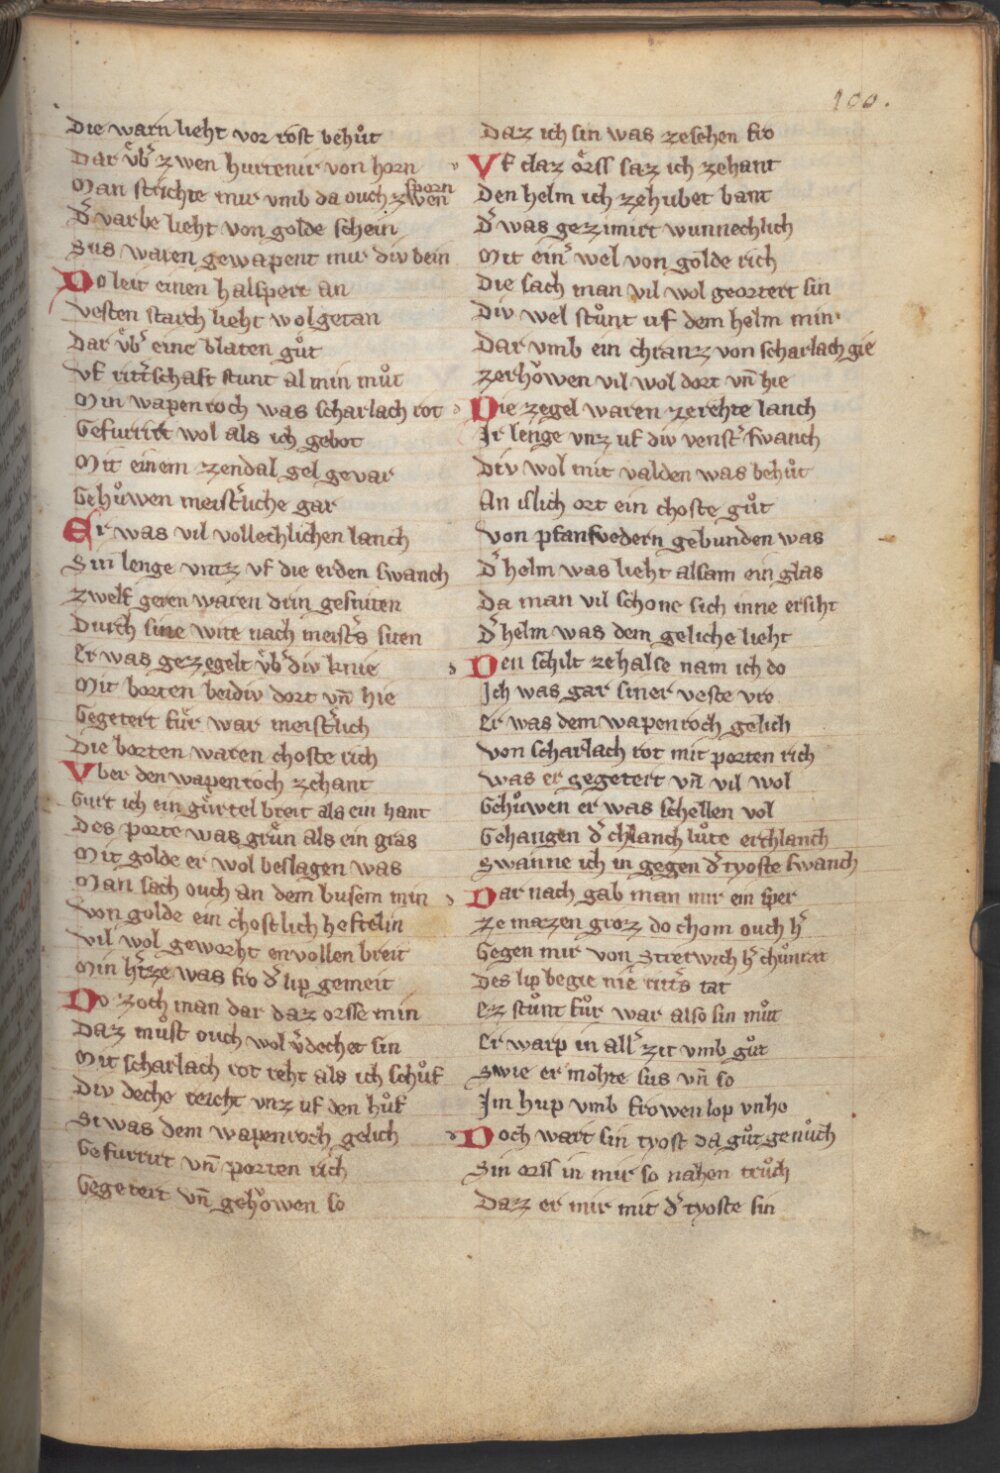 100.
Die warn lieht vor rost behůt
Dar v̊b͛ zwen hurtenir von horn
Man strichte mir vmb da ouch zwen sporn
D͛ varbe lieht von golde schein
Sus waren gewapent mir div bein
Do leit einen halspert an
Vesten starch lieht wolgetan
Dar v̊b͛ eine blaten gůt
Vf ritt͛schaft stunt al min můt
Min wapenroch was scharlach rot
Gefurrirt wol als ich gebot
Mit einem zendal gel gevar
Gehůwen meist͛liche gar
Er was vil vollechlichen lanch
Sin lenge vntz vf die erden swanch
Zwelf geren waren drin gesniten
Durch sine wite nach meist͛s siten
Er was gezegelt v̊b͛ div knie
Mit borten beidiv dort vn̄ hie
Gegetert fůr war meist͛lich
Die borten waren choste rich
Vber den wapenroch zehant
Gurt ich ein gůrtel breit als ein hant
Des porte was grůn als ein gras
Mit golde er wol beslagen was
Man sach ouch an dem busem min
Von golde ein chostlich heftelin
Vil wol geworht envollen breit
Min h͛tze was fro d͛ lip gemeit
Do zoch man dar daz orsse min
Daz můst ouch wol v͛dechet sin
Mit scharlach rot reht als ich schůf
Div deche reicht vnz uf den hůf
Si was dem wapenroch gelich
Gefurrirt vn̄ porten rich
Gegetert vn̄ gehůwen so
Daz ich sin was zesehen fro
Vf daz o̊rss saz ich zehant
Den helm ich zehubet bant
D͛ was gezimirt wunnechlich
Mit ein͛ wel von golde rich
Die sach man vil wol geortert sin
Div wel stůnt uf dem helm min
Dar vmb ein chranz von scharlach gie
Zerhowen vil wol dort vn̄ hie
Die zegel waren zerehte lanch
Ir lenge vnz uf div venst͛ swanch
Div wol mit valden was behůt
An islich ort ein choste gůt
Von pfanfvedern gebunden was
D͛ helm was lieht alsam ein glas
Da man vil schone sich inne ersiht
D͛ helm was dem geliche lieht
Den schilt zehalse nam ich do
Ich was gar siner veste vro
Er was dem wapenroch gelich
Von scharlach rot mit porten rich
Was er gegetert vn̄ vil wol
Gehůwen er was schellen vol
Gehangen d͛ chlanch lůte erchlanch
Swanne ich in gegen d͛ tyoste swanch
Dar nach gab man mir ein sper
Ze mazen groz do chom ouch h͛
Gegen mir von Stretwich h͛ chůnrat
Des lip begie nie ritt͛s tat
Ez stůnt fůr war also sin můt
Er warp in all͛ zit vmb gůt
Swie er mohte sus vn̄ so
Im hup vmb frowen lop vnho
Doch wart sin tyost da gůt genůch
Sin orss in mir so nahen trůch
Daz er mir mit d͛ tyoste sin